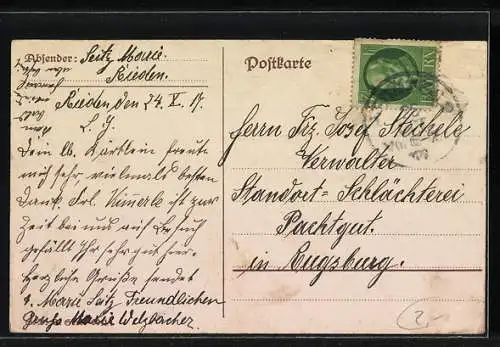 Absender: Seitz Marie
Rieden.
Rieden den 24. V. 17.
L. J.
Dein lb. Kärtlein freute
mich sehr, vielmals besten
Dank. Frl. Kimerle ist zur
Zeit bei uns auf Besuch
gefällt Ihr sehr gut hier.
Herzliche Grüße sendet
Marie Seitz Freundlichen
Gruß Marie Welzbacher.
Postkarte
BAYERN
Herrn Frz. Josef Stechele
Verwalter
Standort-Schlächterei
Pachtgut.
in Augsburg.
2-